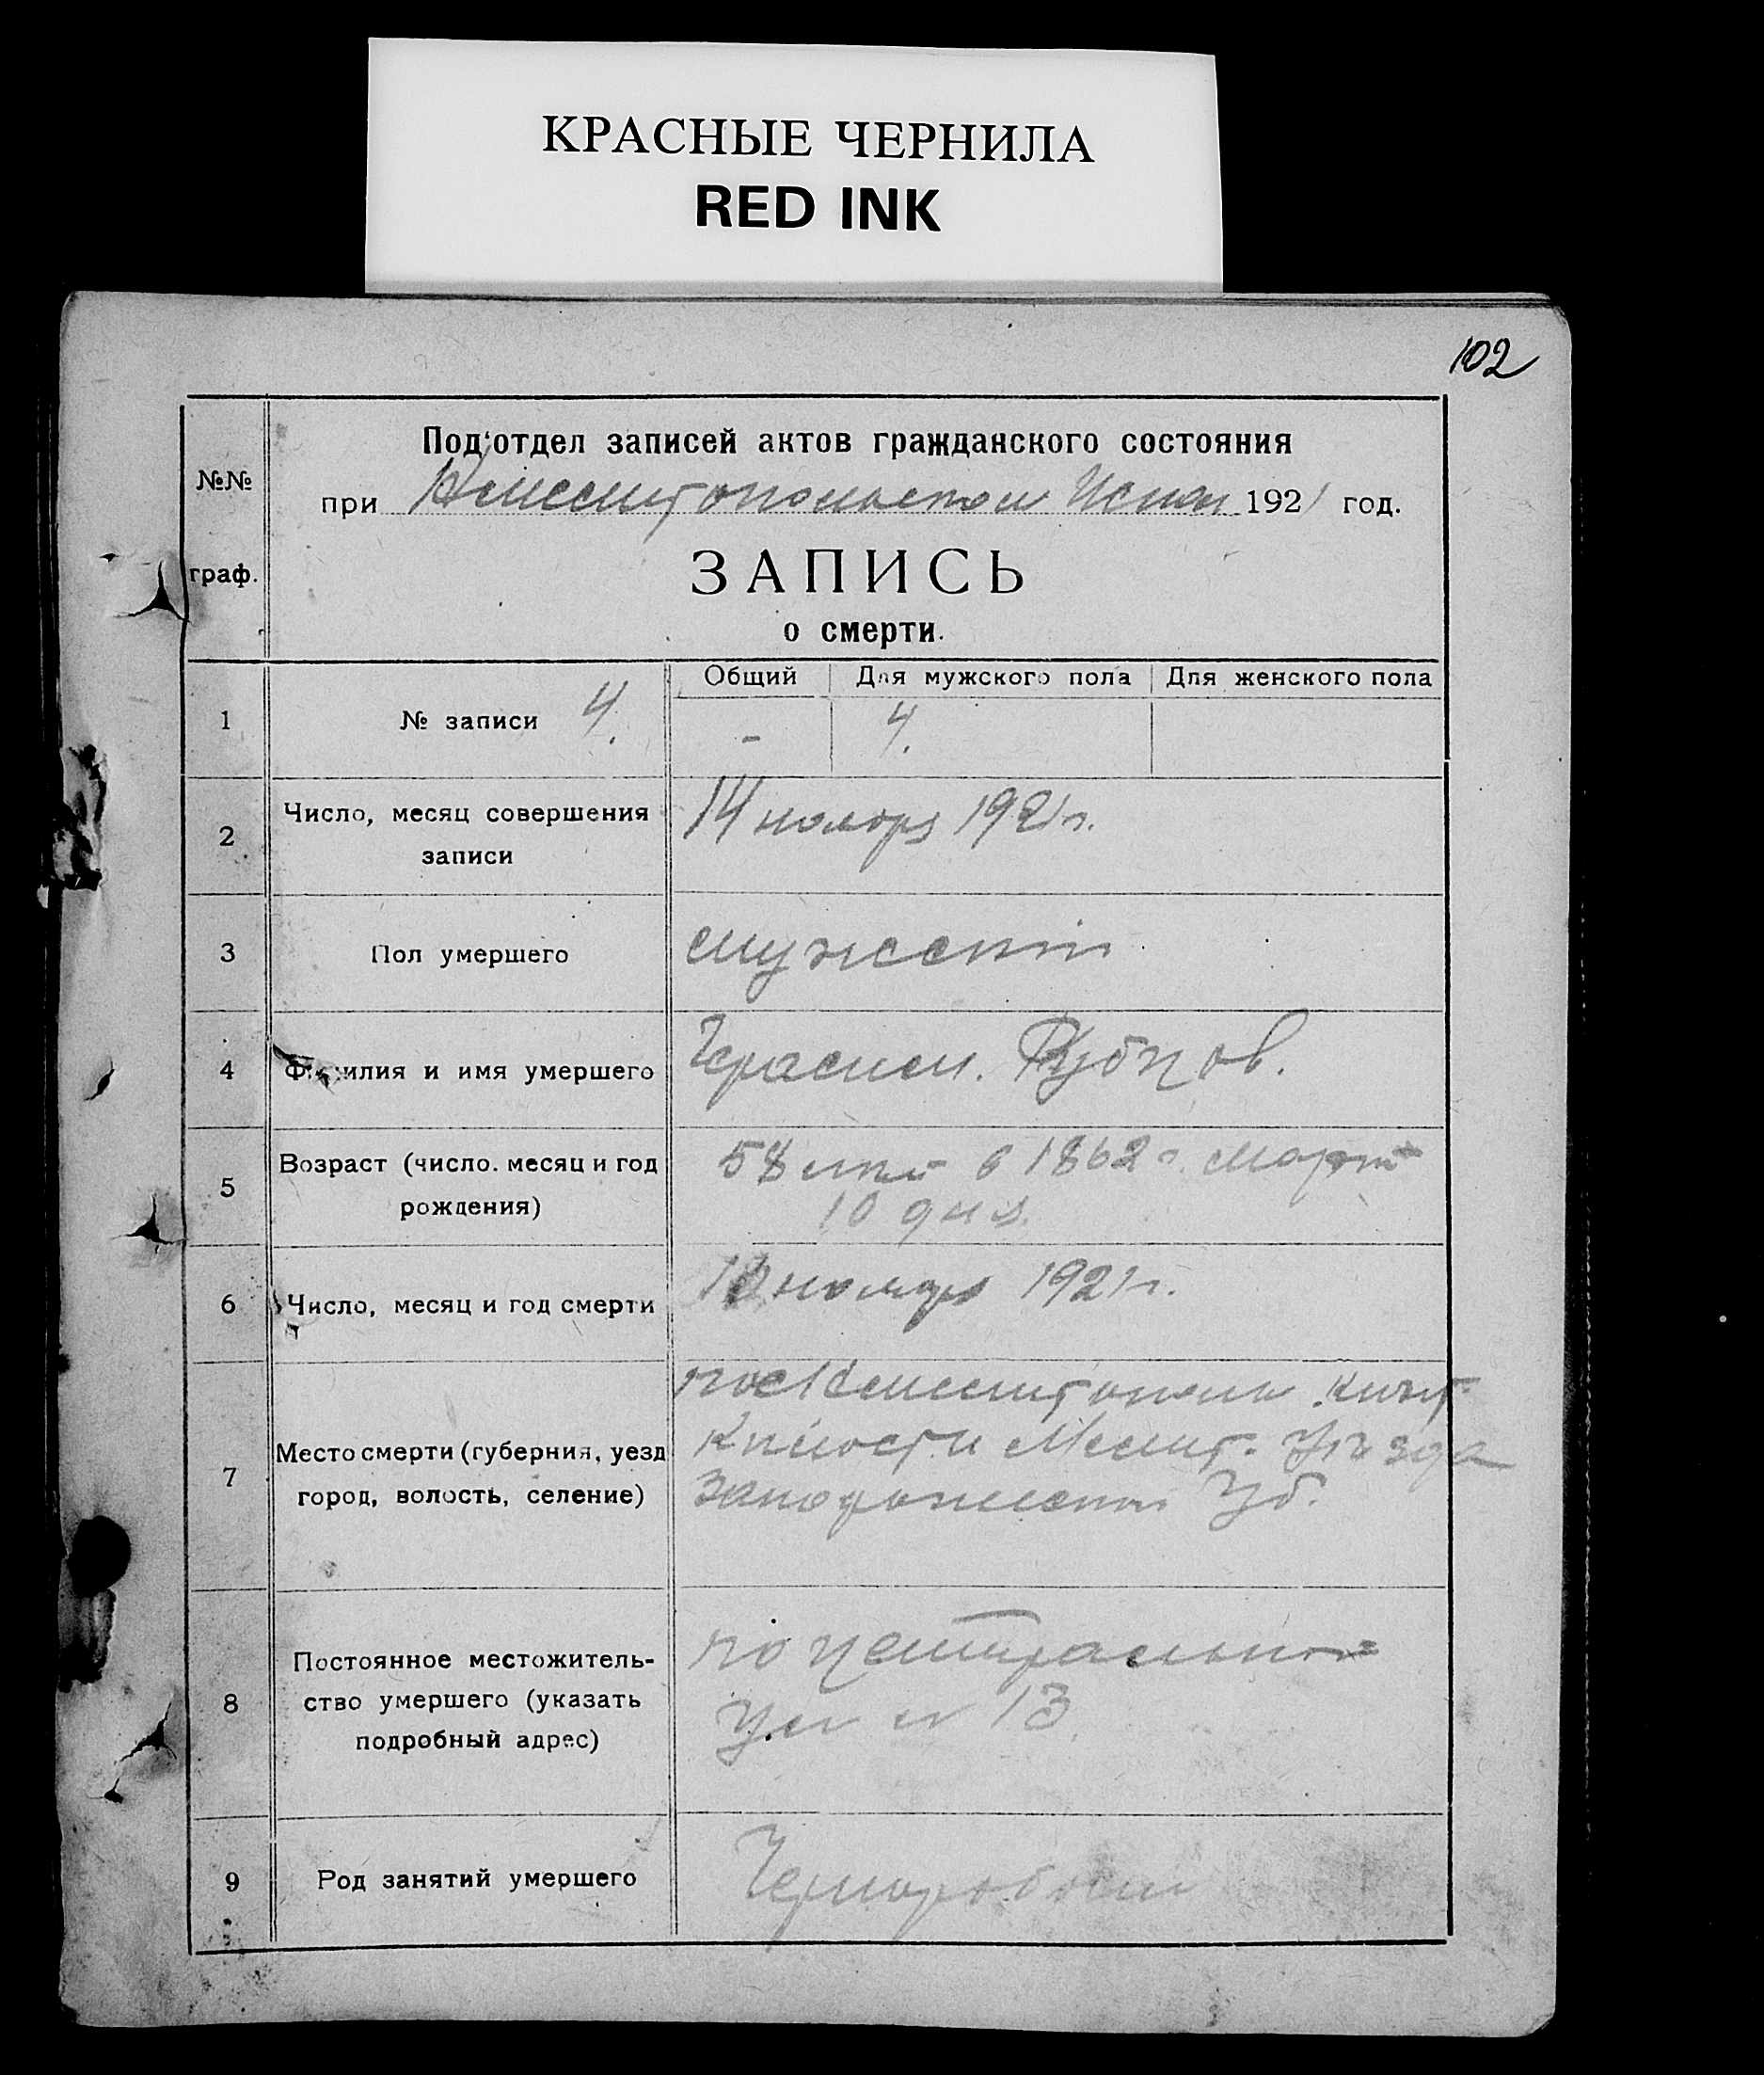 КРАСНЫЕ ЧЕРНИЛА
RED INK
102
№№
граф.
Под'отдел записей актов гражданского состояния
при 1921 год.
ЗАПИСЬ
о смерти.
Общий Для мужского пола Для женского пола
1 № записи 4. - 4.
2 Число, месяц совершения записи
14 ноября 1921 г.
3 Пол умершего
мужской
4 Фамилия и имя умершего
Герасим. Рубцов.
5 Возраст (число. месяц и год рождения)
58 лет в 1862 г. март
10 дня.
6 Число, месяц и год смерти
ноября 1921 г.
7 Место смерти (губерния, уезд город, волость, селение)
Мелит. уезда
Запорожской Губ.
8 Постоянное местожитель-
ство умершего (указать
подробный адрес)
по Центральной
ул 13
9 Род занятий умершего